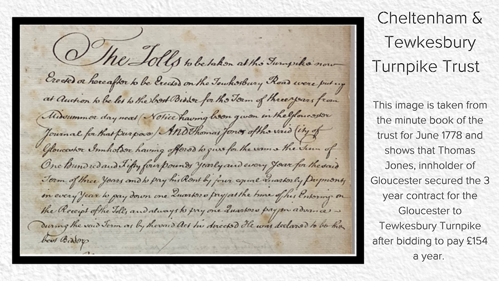 The Tolls to be taken at the Turnpike now
Erected or hereafter to be Erected on the Tewkesbury Road were put up
at Auction to be let to the best Bidder for the Term of three years from
Midsummer day next (Notice having been given in the Gloucester
Journal for that purpose) AND Thomas Jones of the said City of
Gloucester Innholder having offered to give for the same the Sum of
One hundred and Fifty four pounds Yearly and every Year for the said
Term of three Years and to pay his Rent by four equal Quarterly Payments
in every Year to pay down one Quarters pay at the time of his Entering on
the Receipt of the Tolls and always to pay one Quarters pay in advance
during the said Term as by the said Act is directed He was declared to be the
best Bidder
Cheltenham &
Tewkesbury
Turnpike Trust
This image is taken from
the minute book of the
trust for June 1778 and
shows that Thomas
Jones, innholder of
Gloucester secured the 3
year contract for the
Gloucester to
Tewkesbury Turnpike
after bidding to pay £154
a year.